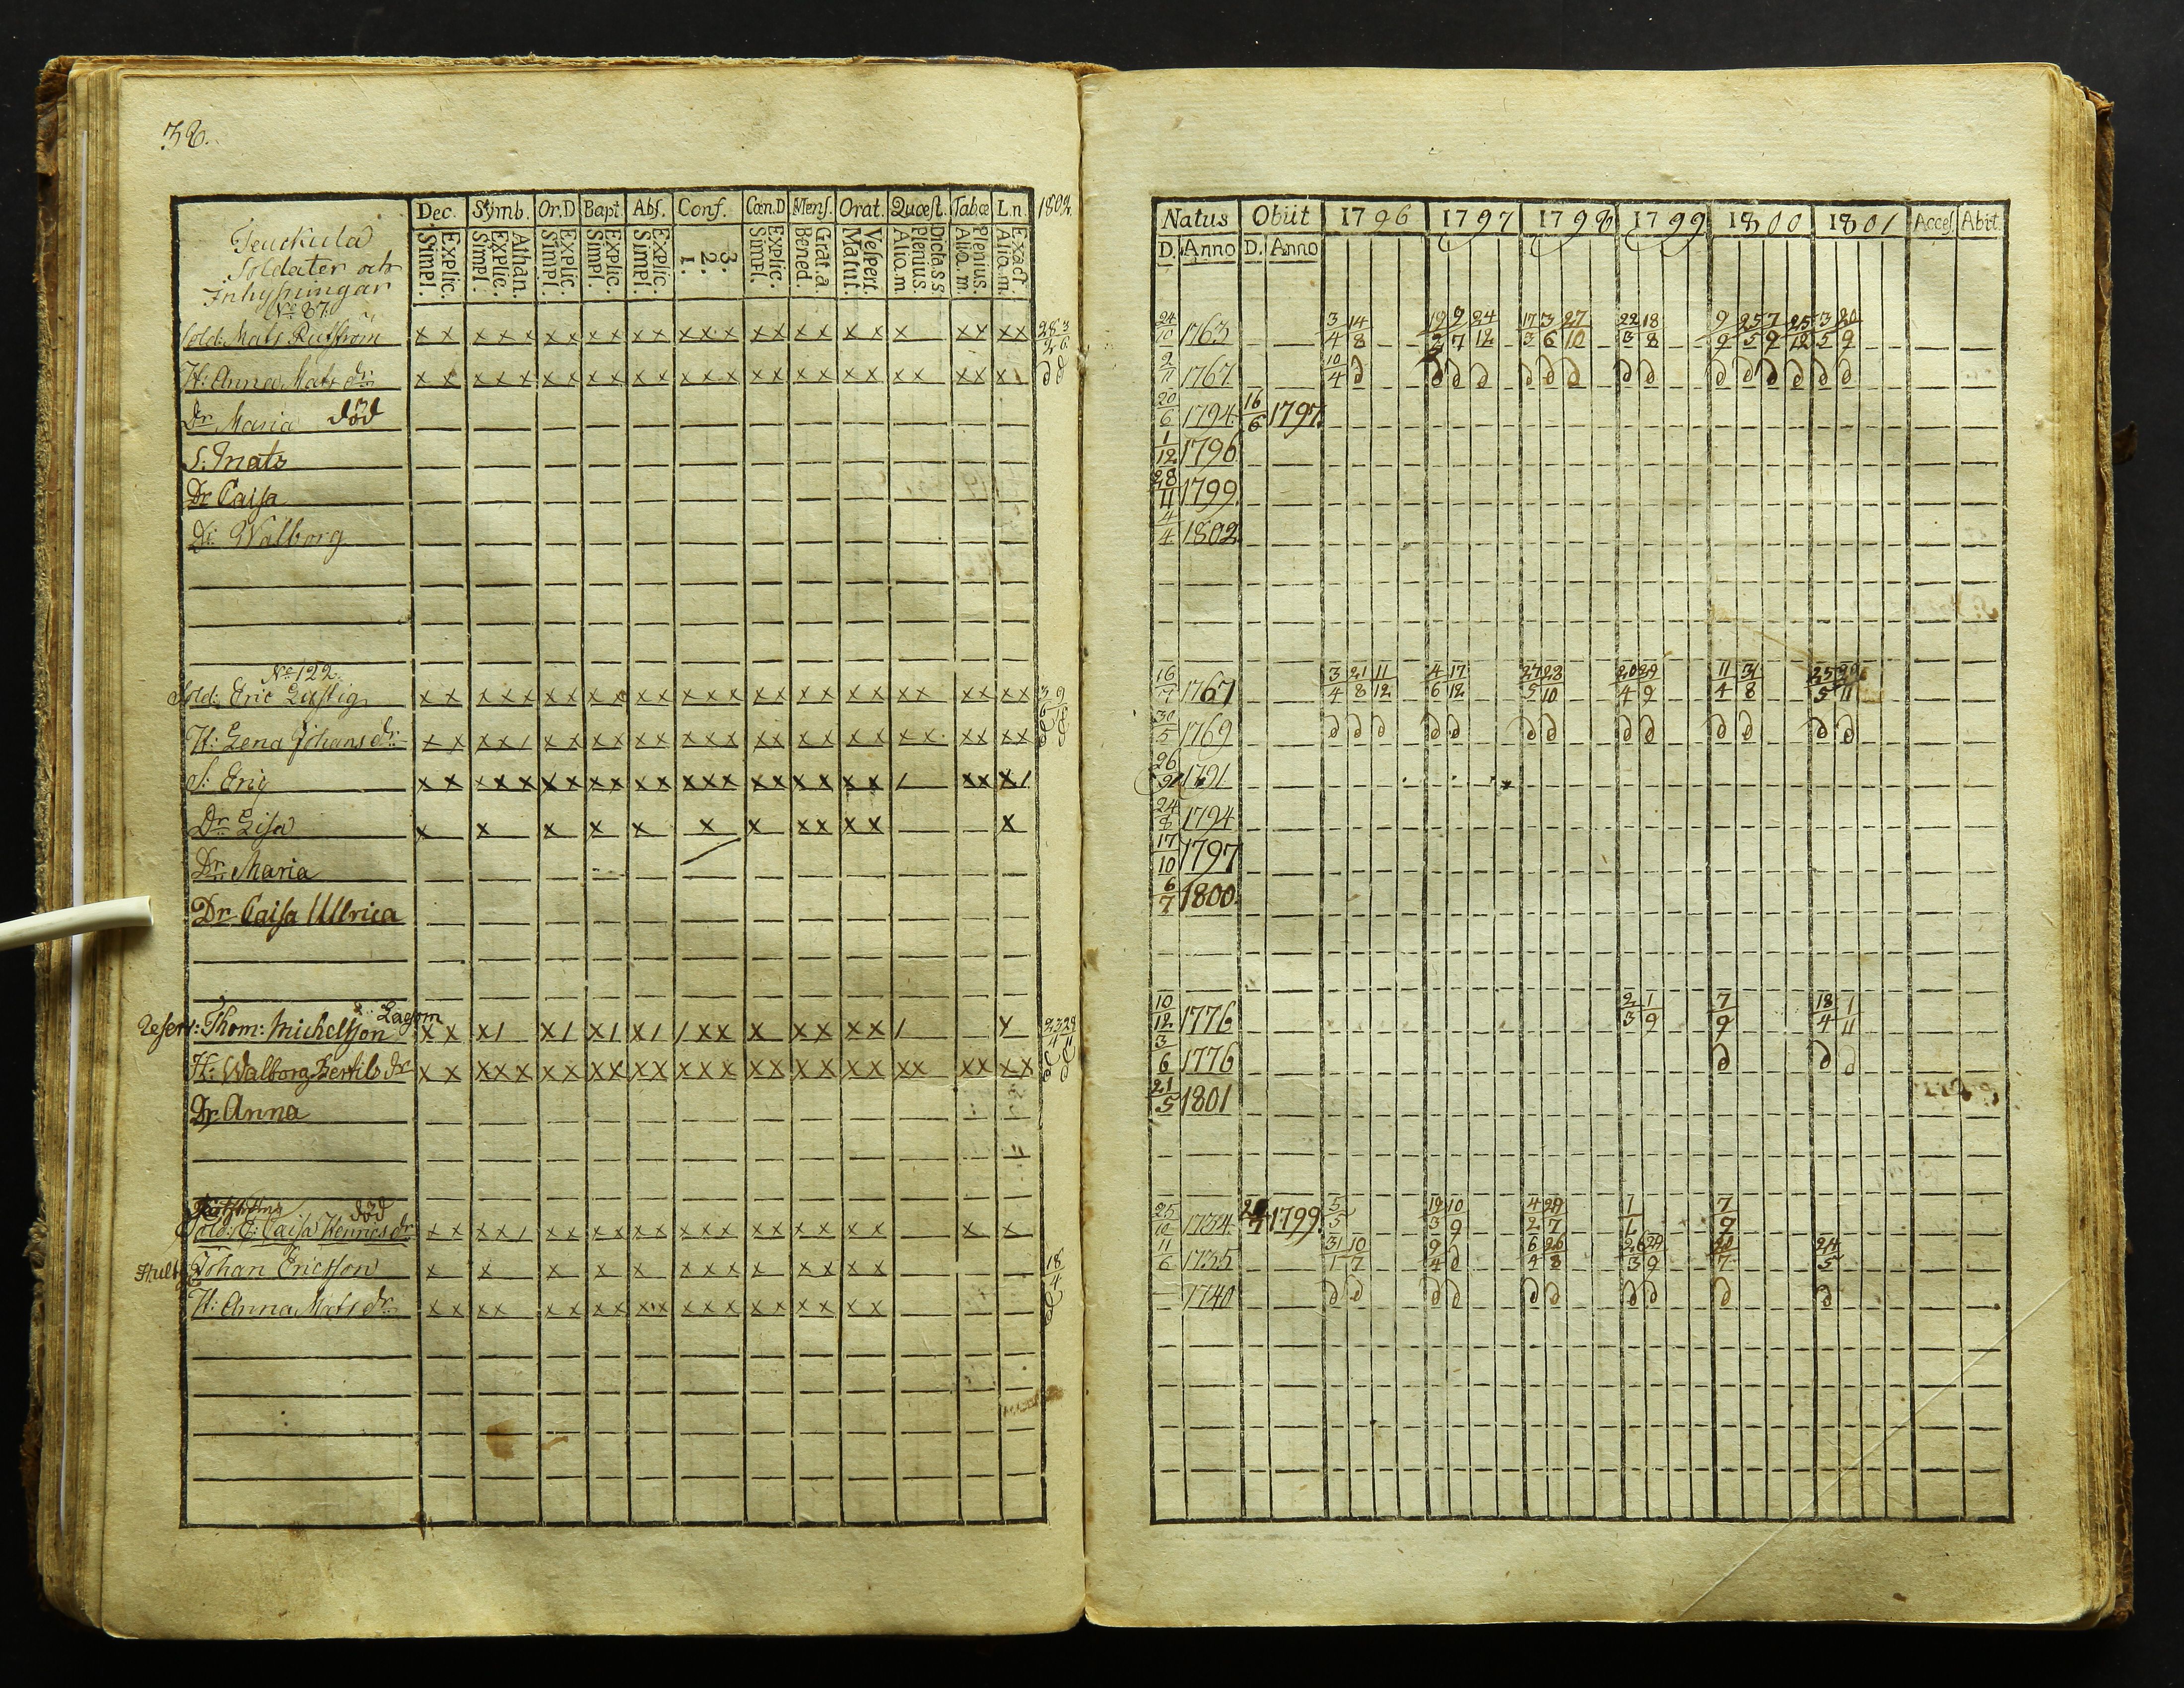 38.
Dec. Symb. Or.D Bapt. Abs. Conf. Cœn.D Mens. Orat. Quæst. Tab.œ L.n. 1802
Explic. Simpl. Athan. Explic. Simpl. Explic. Simpl. Explic. Simpl. Explic. Simpl. 3. 2. 1. Explic. Simpl. Grat.a. Bened. Vespert. Matut. Dicta.s.s. Plenius. Alio.m. Plenius. Alio.m. Exact. Alio.m.
Soldater och
Inhysningar
No 87.
Sold: Mats
H: Anna Mats dr
Dr Maria död
S: Mats
Dr Caisa
Dr: Walborg
No 122.
Sold: Eric Lustig
H: Lena Johans dr
S: Eric
Dr Lisa
Dr Maria
Dr Caisa Ulrica
Reserv: Thom: Michelsson Lagom
H: Walborg Bertils dr
Dr Anna
död
Sold: E: Caisa Henrics dr
Johan Ericsson
H: Anna Mats dr
Natus Obiit 1796 1797 1798 1799 1800 1801 Acces. Abiit.
D. Anno D. Anno
24/10 1763 3/4 14/8 19/2 9/7 24/12 17/3 3/6 27/10 22/3 18/8 9/2 25/5 7/9 25/12 3/5 20/9
2/11 1767 10/4 d d d d d d d d d d d d d d d
20/6 1794 16/6 1797.
1/12 1796
28/11 1799.
4/4 1802
16/7 1767 3/4 21/8 11/12 4/6 17/12 27/5 28/10 20/4 29/9 11/4 31/8 25/5 29/11
30/5 1769 d d d d d d d d d d d d d
26/9 1791
24/8 1794
17/10 1797
6/7 1800.
10/12 1776 2/3 1/9 7/9 18/4 1/11
3/6 1776 d d d
21/5 1801
25/10 1734 1799. 5/5 19/3 10/9 4/2 29/7 1/1 7/9
11/6 1735 31/1 10/7 9/4 d 6/4 26/8 26/3 29/9 20/7 24/5
1740 d d d d d d d d d d